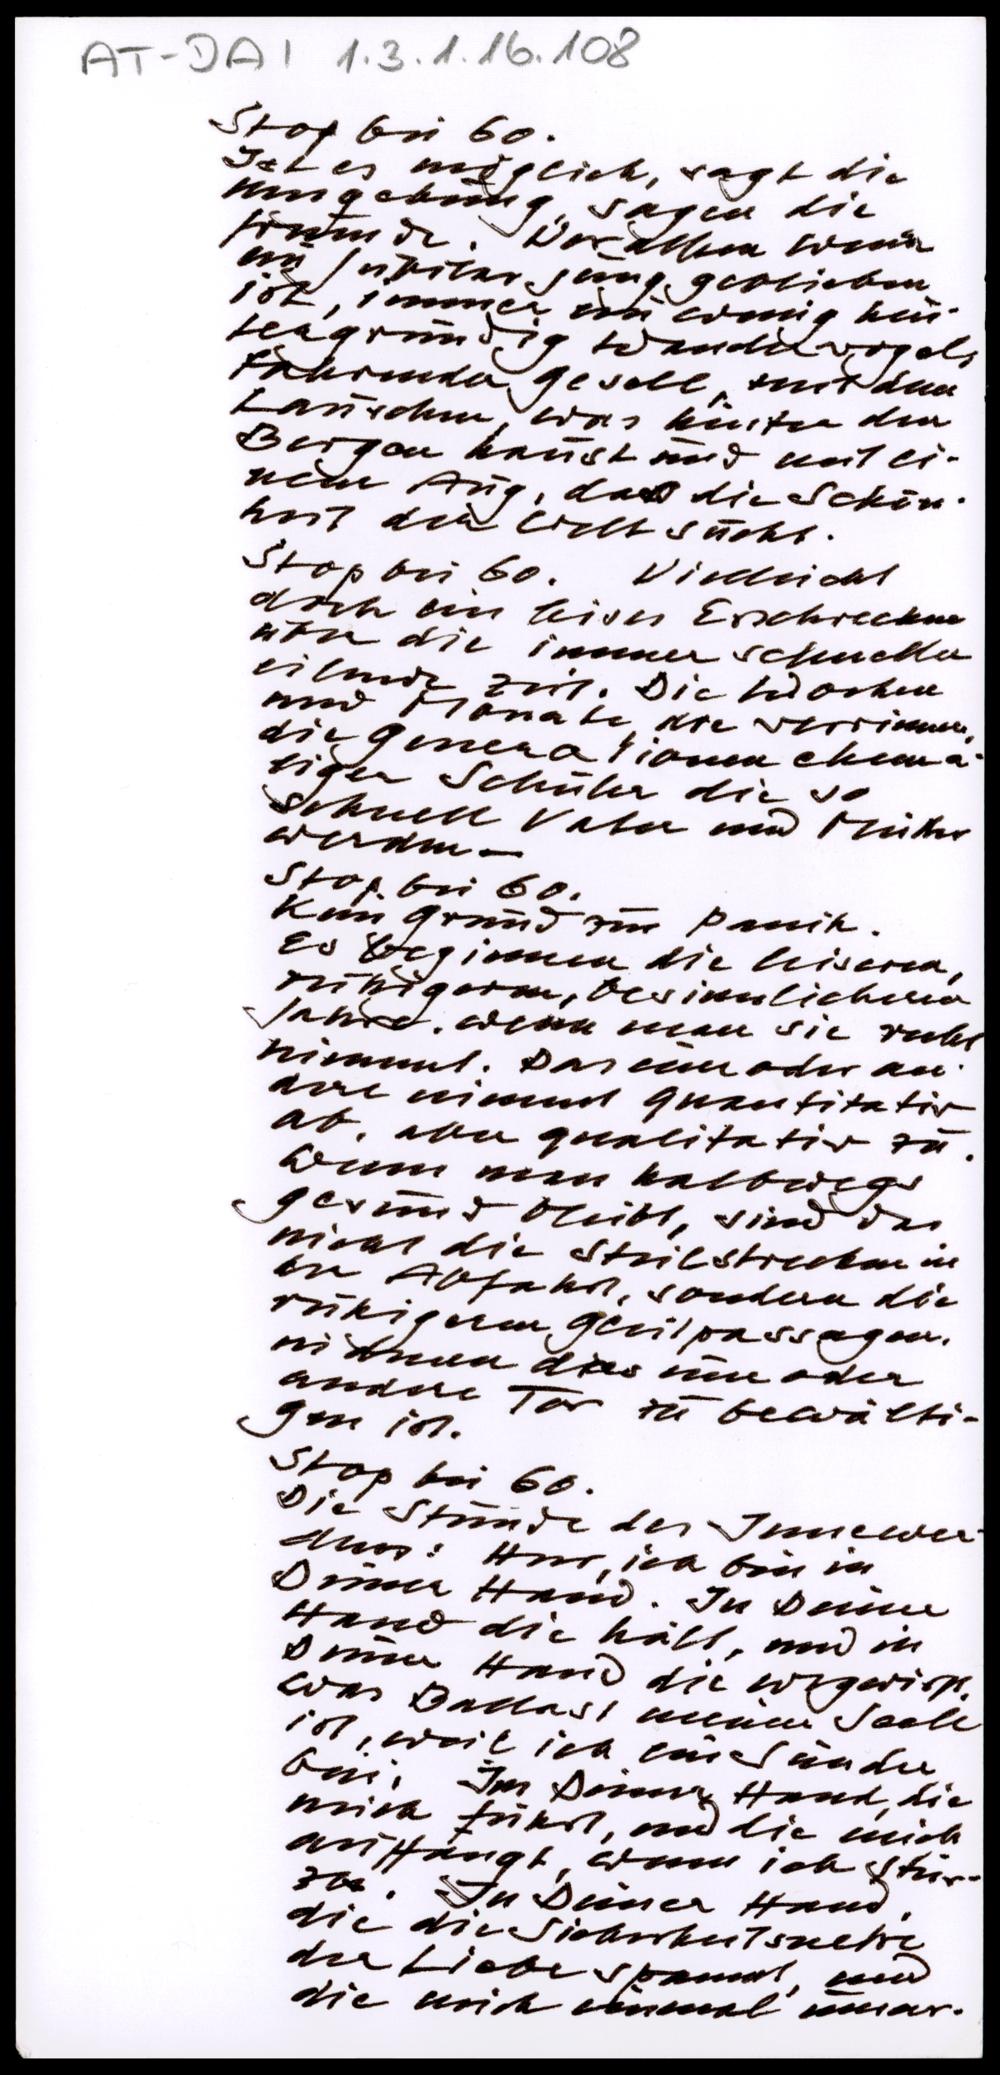 AT-DAI 1.3.1.16.108
Stop bei 60.
Ist es möglich, sagt die
Umgebung, sagen die
Freunde. Vor allem wenn
ein Jubilar jung geblieben
ist, immer ein wenig hin-
tergründig Wandervogel,
fahrender Gesell, mit dem
Lauschen, was hinter den
Bergen haust und mit ei-
nem Aug, das die Schön-
heit der Welt sucht.
Stop bei 60. Vielleicht
doch ein leises Erschrecken
über die immer schneller
eilende Zeit. Die Wochen
und Monate die verrinnen,
die Generationen ehema-
liger Schüler die so
schnell Vater und Mutter
werden –
Stop bei 60.
Kein Grund zur Panik.
Es beginnen die leiseren,
ruhigeren, besinnlicheren
Jahre. Wenn man sie recht
nimmt. Das eine oder an-
dere nimmt quantitativ
ab, aber qualitativ zu.
Wenn man halbwegs
gesund bleibt, sind das
nicht die Steilstrecken in
der Abfahrt, sondern die
ruhigeren Gleitpassagen.
in denen das eine oder
andere Tor zu bewälti-
gen ist.
Stop bei 60.
Die Stunde des Innewer-
dens: Herr, ich bin in
Deiner Hand. In Deiner
Hand die hält, und in
Deiner Hand die wegwirft,
was Ballast meiner Seele
ist, weil ich ein Sünder
bin. In Deiner Hand, die
mich führt, und die mich
auffängt, wenn ich stür-
ze. In Deiner Hand,
die die Sicherheitsnetze
der Liebe spannt, und
die mich einmal umar-